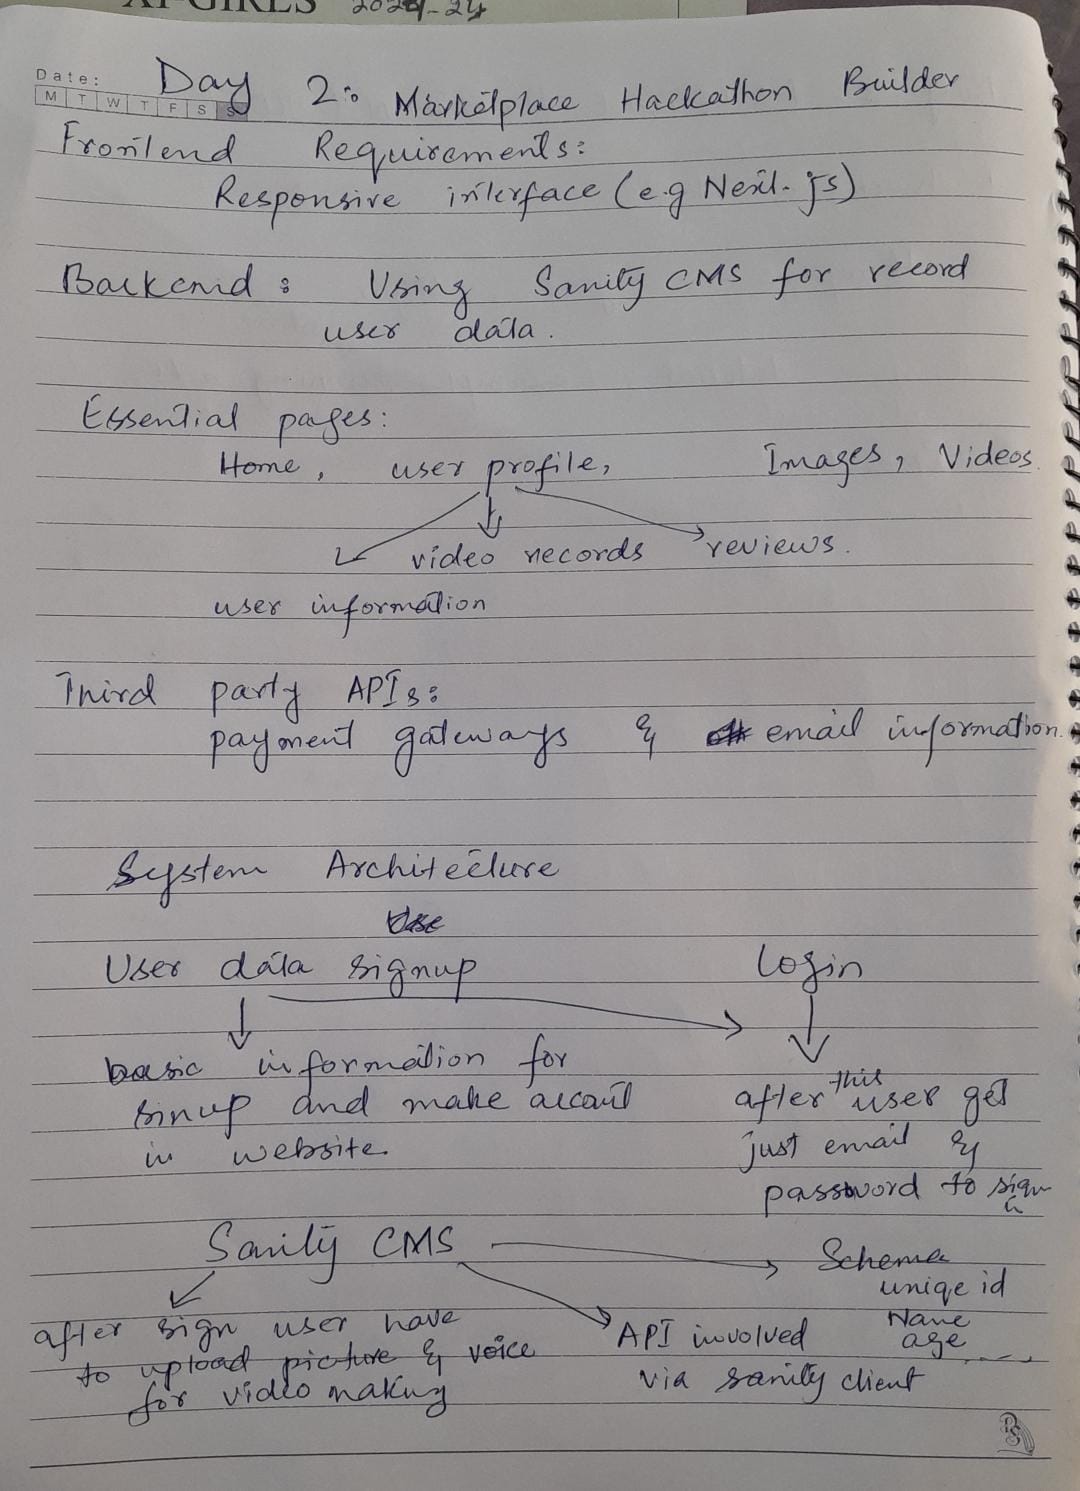 XI-GIRLS 2024-24
Date:
M T W T F S S
Day 2: Marketplace Hackathon Builder
Frontend Requirements:
Responsive interface (e.g Next.js)
Backend : Using Sanity CMS for record
user data.
Essential pages:
Home, user profile, Images, Videos.
video records reviews.
user information
Third party APIs:
payment gateways & email information.
System Architecture
Use
User data signup Login
basic information for
sinup and make accout
in website.
after this user get
just email &
password to sign
in
Sanity CMS
Schema
uniqe id
Name
age
after sign user have
to upload picture & voice
for video making
API involved
via sanity client